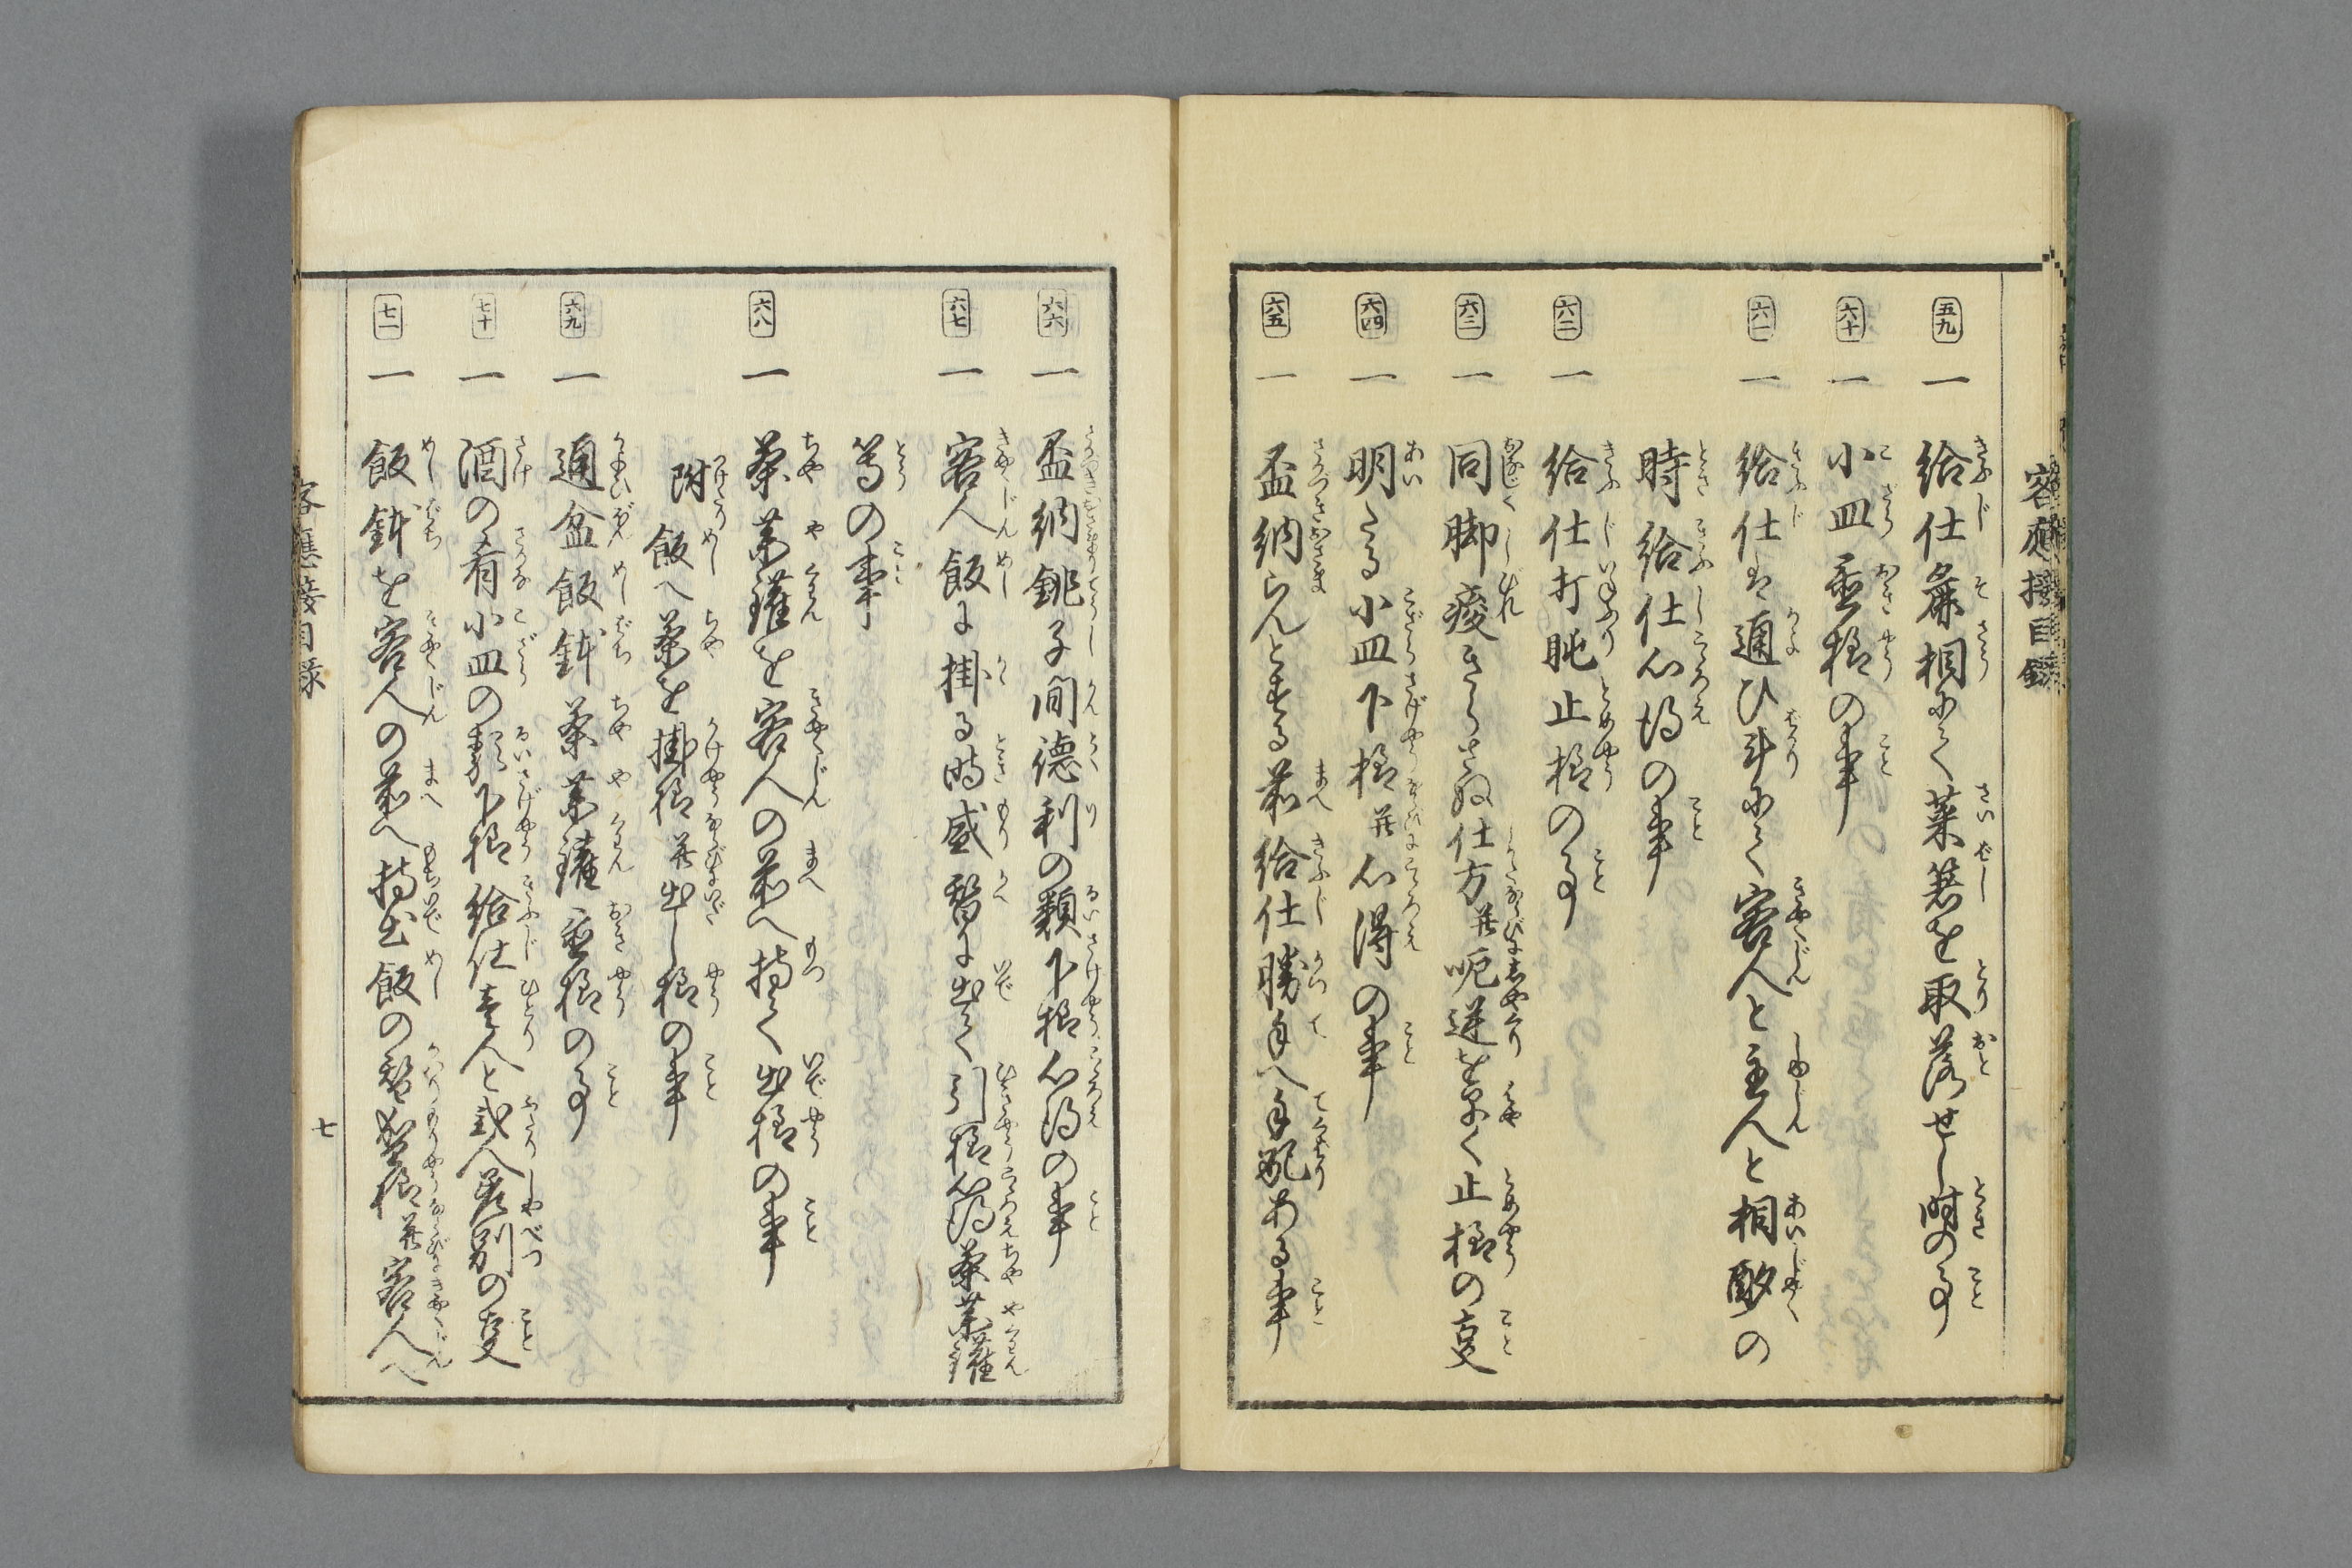 客應接目録
五九 一 給仕麁相にて菜箸を取落せし時の事
六十 一 小皿置様の事
六一 一 給仕は通ひ斗にて客人と主人と相酌の
時給仕心得の事
六二 一 給仕打眠止様の事
六三 一 同脚痿きらさぬ仕方并呃逆を早く止様の叓
六四 一 明たる小皿下様并心得の事
六五 一 盃納らんとする前給仕勝手へ手配ある事
六六 一 盃納銚子間徳利の類下様心得の事
六七 一 客人飯に掛る時盛替に出て引様心得茶薬鑵
等の事
六八 一 茶薬鑵を客人の前へ持て出様の事
附 飯へ茶を掛様并出し様の事
六九 一 通盆飯鉢茶薬鑵置様の事
七十 一 酒の肴小皿の類下様給仕壱人と弐人差別の叓
七一 一 飯鉢を客人の前へ持出飯の替盛様并客人へ
客應接目録
七